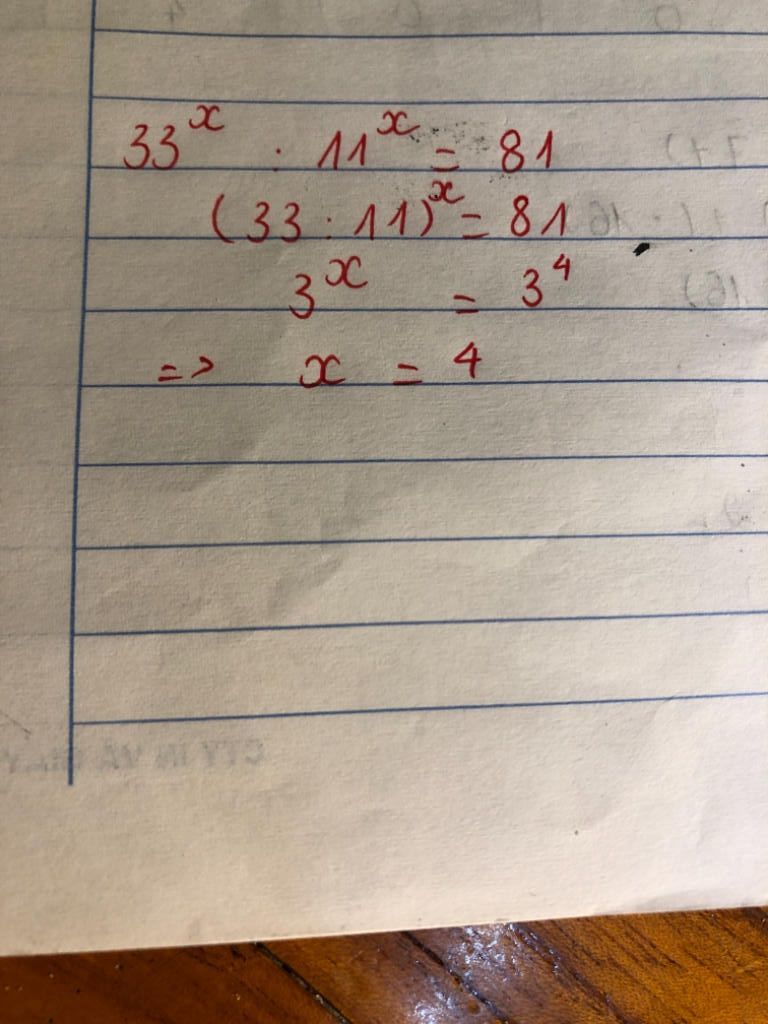 33ˣ : 11ˣ = 81
(33 : 11)ˣ = 81
3ˣ = 3⁴
=> x = 4